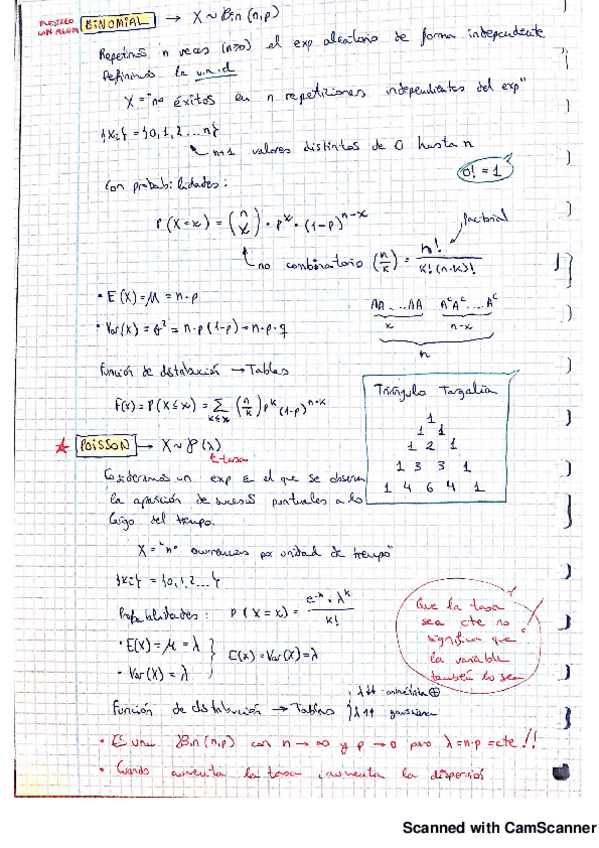 MUESTREO CON REEM
BINOMIAL → X ~ Bin (n,p)
Repetimos n veces (n>0) el exp aleatorio de forma independiente
Definimos la v.a.d
X = "nº éxitos en n repeticiones independientes del exp"
{Xi} = {0,1,2...n}
n+1 valores distintos de 0 hasta n
0! = 1
Con probabilidades:
P(X=x) = (n x) · p^x · (1-p)^{n-x}
factorial
nº combinatorio (n k) = n! / k!(n-k)!
• E(X) = μ = n·p
AA.....AA A^c A^c ... A^c
x n-x
• Var(X) = σ² = n·p(1-p) = n·p·q
n
Función de distribución → Tablas
F(x) = P(X≤x) = Σ (n k) p^k (1-p)^{n-x}
K≤x
Triángulo Tartalia
1
1 1
1 2 1
1 3 3 1
1 4 6 4 1
★ POISSON → X ~ P(λ)
tasa
Consideramos un exp en el que se observa
la aparición de sucesos puntuales a lo
largo del tiempo.
X = "nº ocurrencias por unidad de tiempo"
{Xi} = {0,1,2...}
Probabilidades: P(X=x) = e^{-λ} · λ^k / K!
• E(X) = μ = λ
• Var(X) = λ
E(X) = Var(X) = λ
Que la tasa
sea cte no
significa que
la variable
también lo sea
Función de distribución → Tablas
λ↓↓ asimétrica ⊕
λ↑↑ gaussiana
• Es una Bin(n,p) con n→∞ y p→0 pero λ=n·p=cte!!
• Cuando aumenta la tasa, aumenta la dispersión.
Scanned with CamScanner